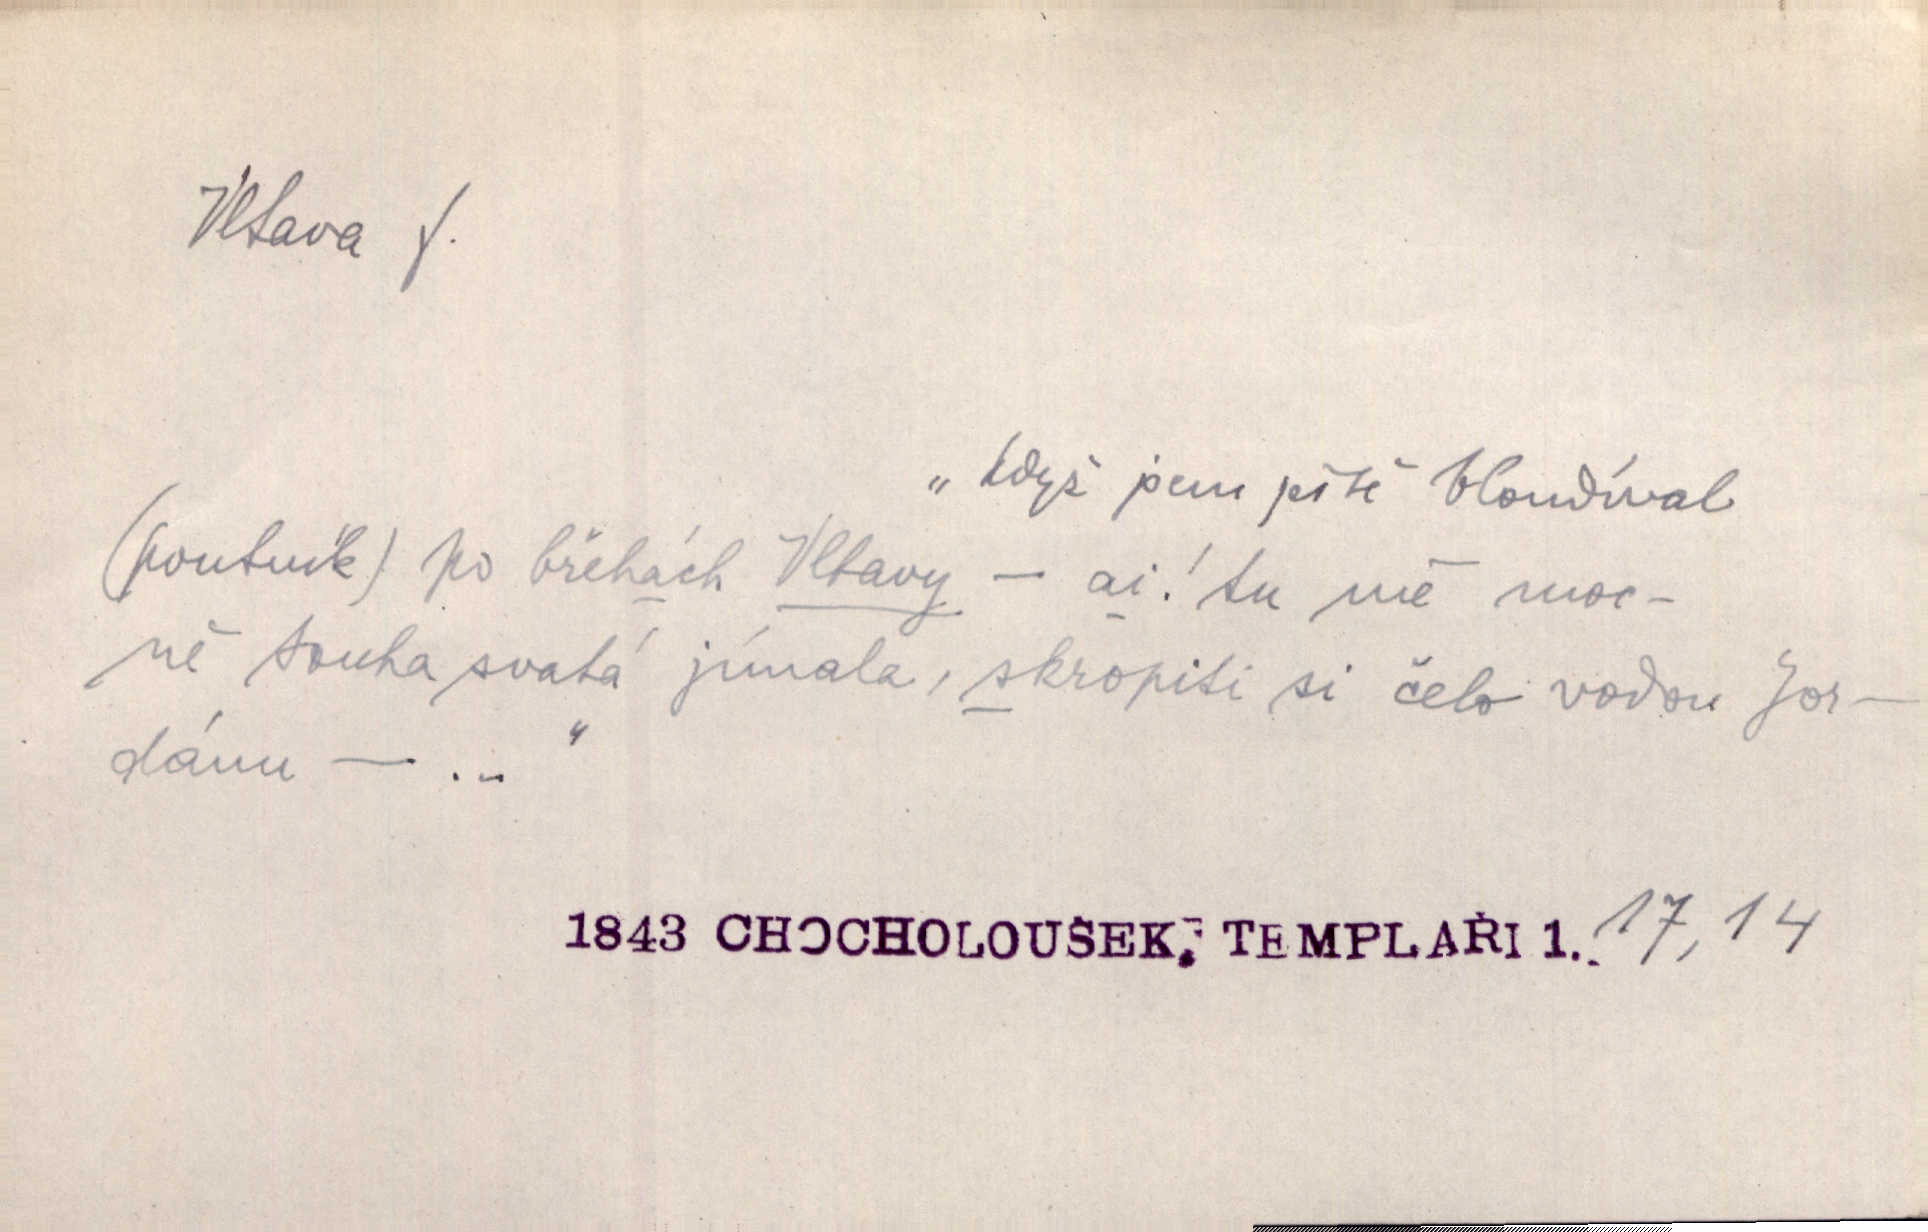 Vltava f.
„když jsem pště bloudíval
(poutník) po břehách Vltavy — ai! tu mě moc-
ně touha svatá jímala, skropiti si čelo vodou Jor-
dánu — ..."
1843 CHOCHOLOUŠEK, TEMPLÁŘI 1. 17, 14